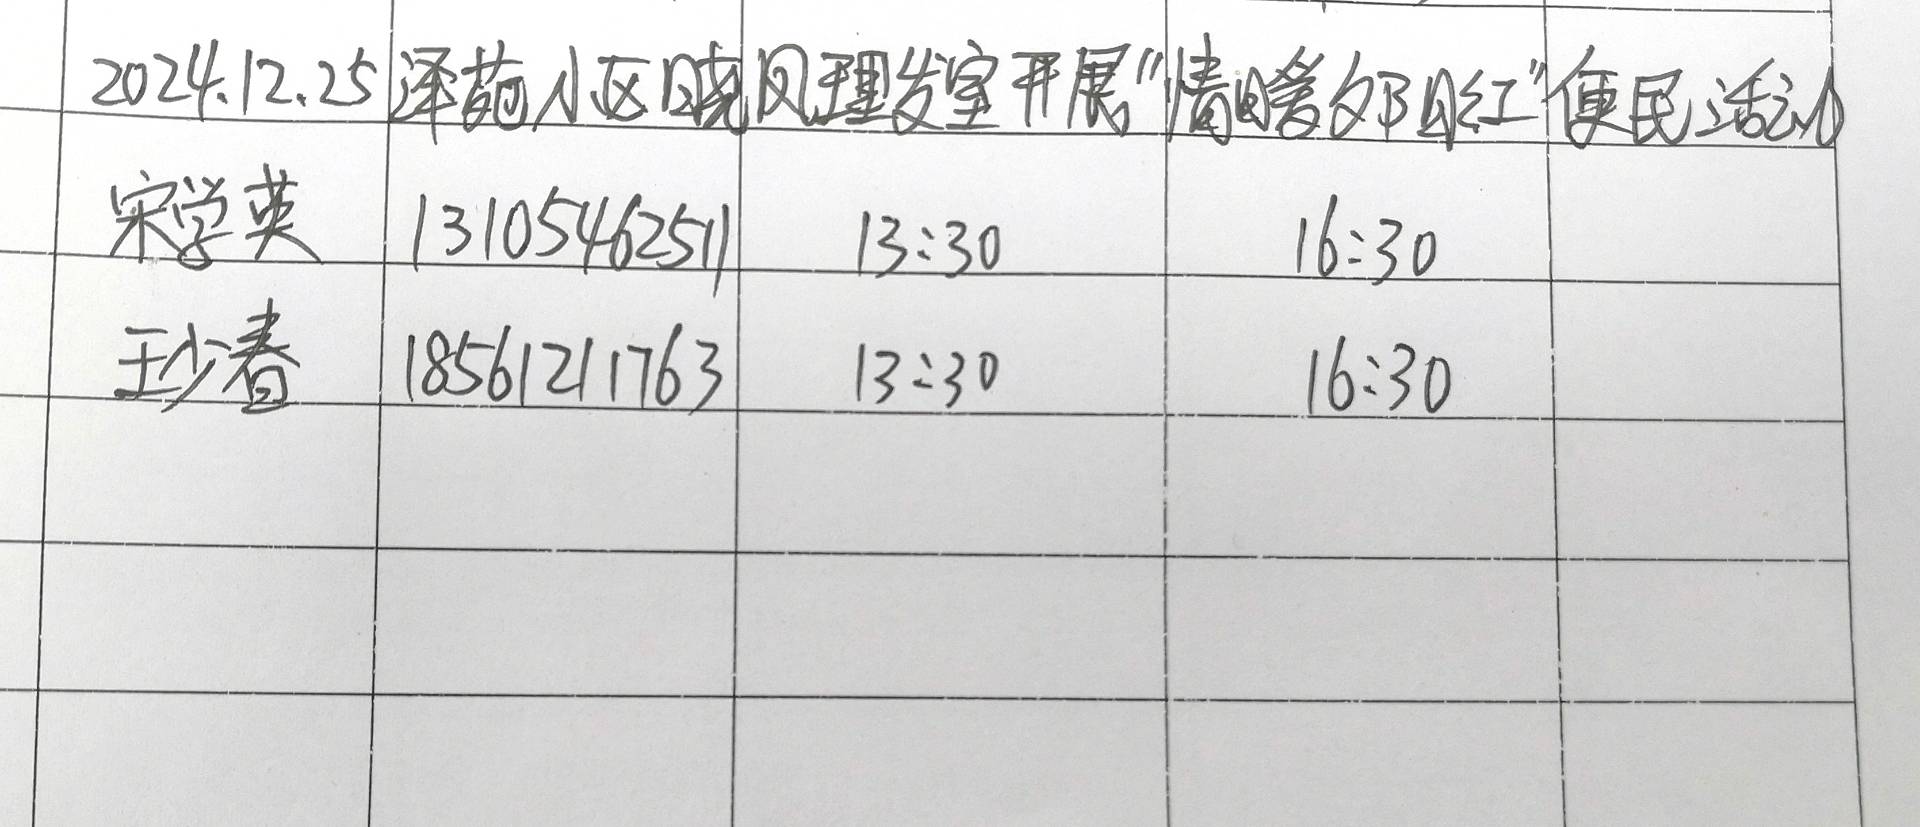 2024.12.25 泽苑小区晓风理发室开展"情暖夕阳红"便民活动
宋学英 13105462511 13:30 16:30
王少春 18561211763 13:30 16:30